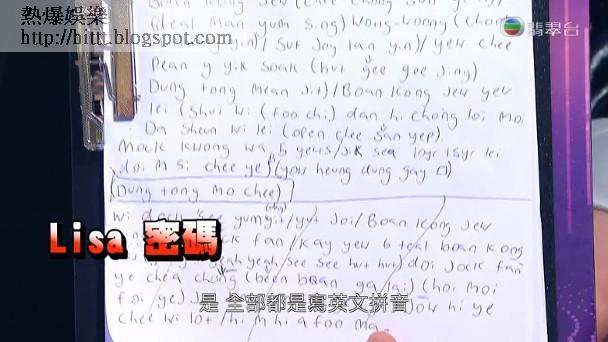 熱爆娛樂
http://hittt.blogspot.com
翡翠台
(deal man yum sing) Wong-Wong (chom
Pean y yik soak (hut gee gee jing)
Dung tong mean Jit)/Boan Kong Jew yew
lei (shui wi (foo chi) dan hi chong loi moi
Da sheun wi lei (open chee san yep)
Mock Kwong wa 5 years/sik sea loyr 15yr lei
doi m si chee ye) (yow heung dung gay
(Dung tong mo chee)
wi dock see yumyit/yut Joi/Boan Kong Jew
fan/kay yew 6 teal boan Kong
yeah yeah see see hut hut) doi Jock fan
ye chea chong (been boan ga lai) (hoi moi
foi/ye)
Dow hi ye
chee wi lot/hi m hi a foo ma
Lisa 密碼
是 全部都是寫英文拼音